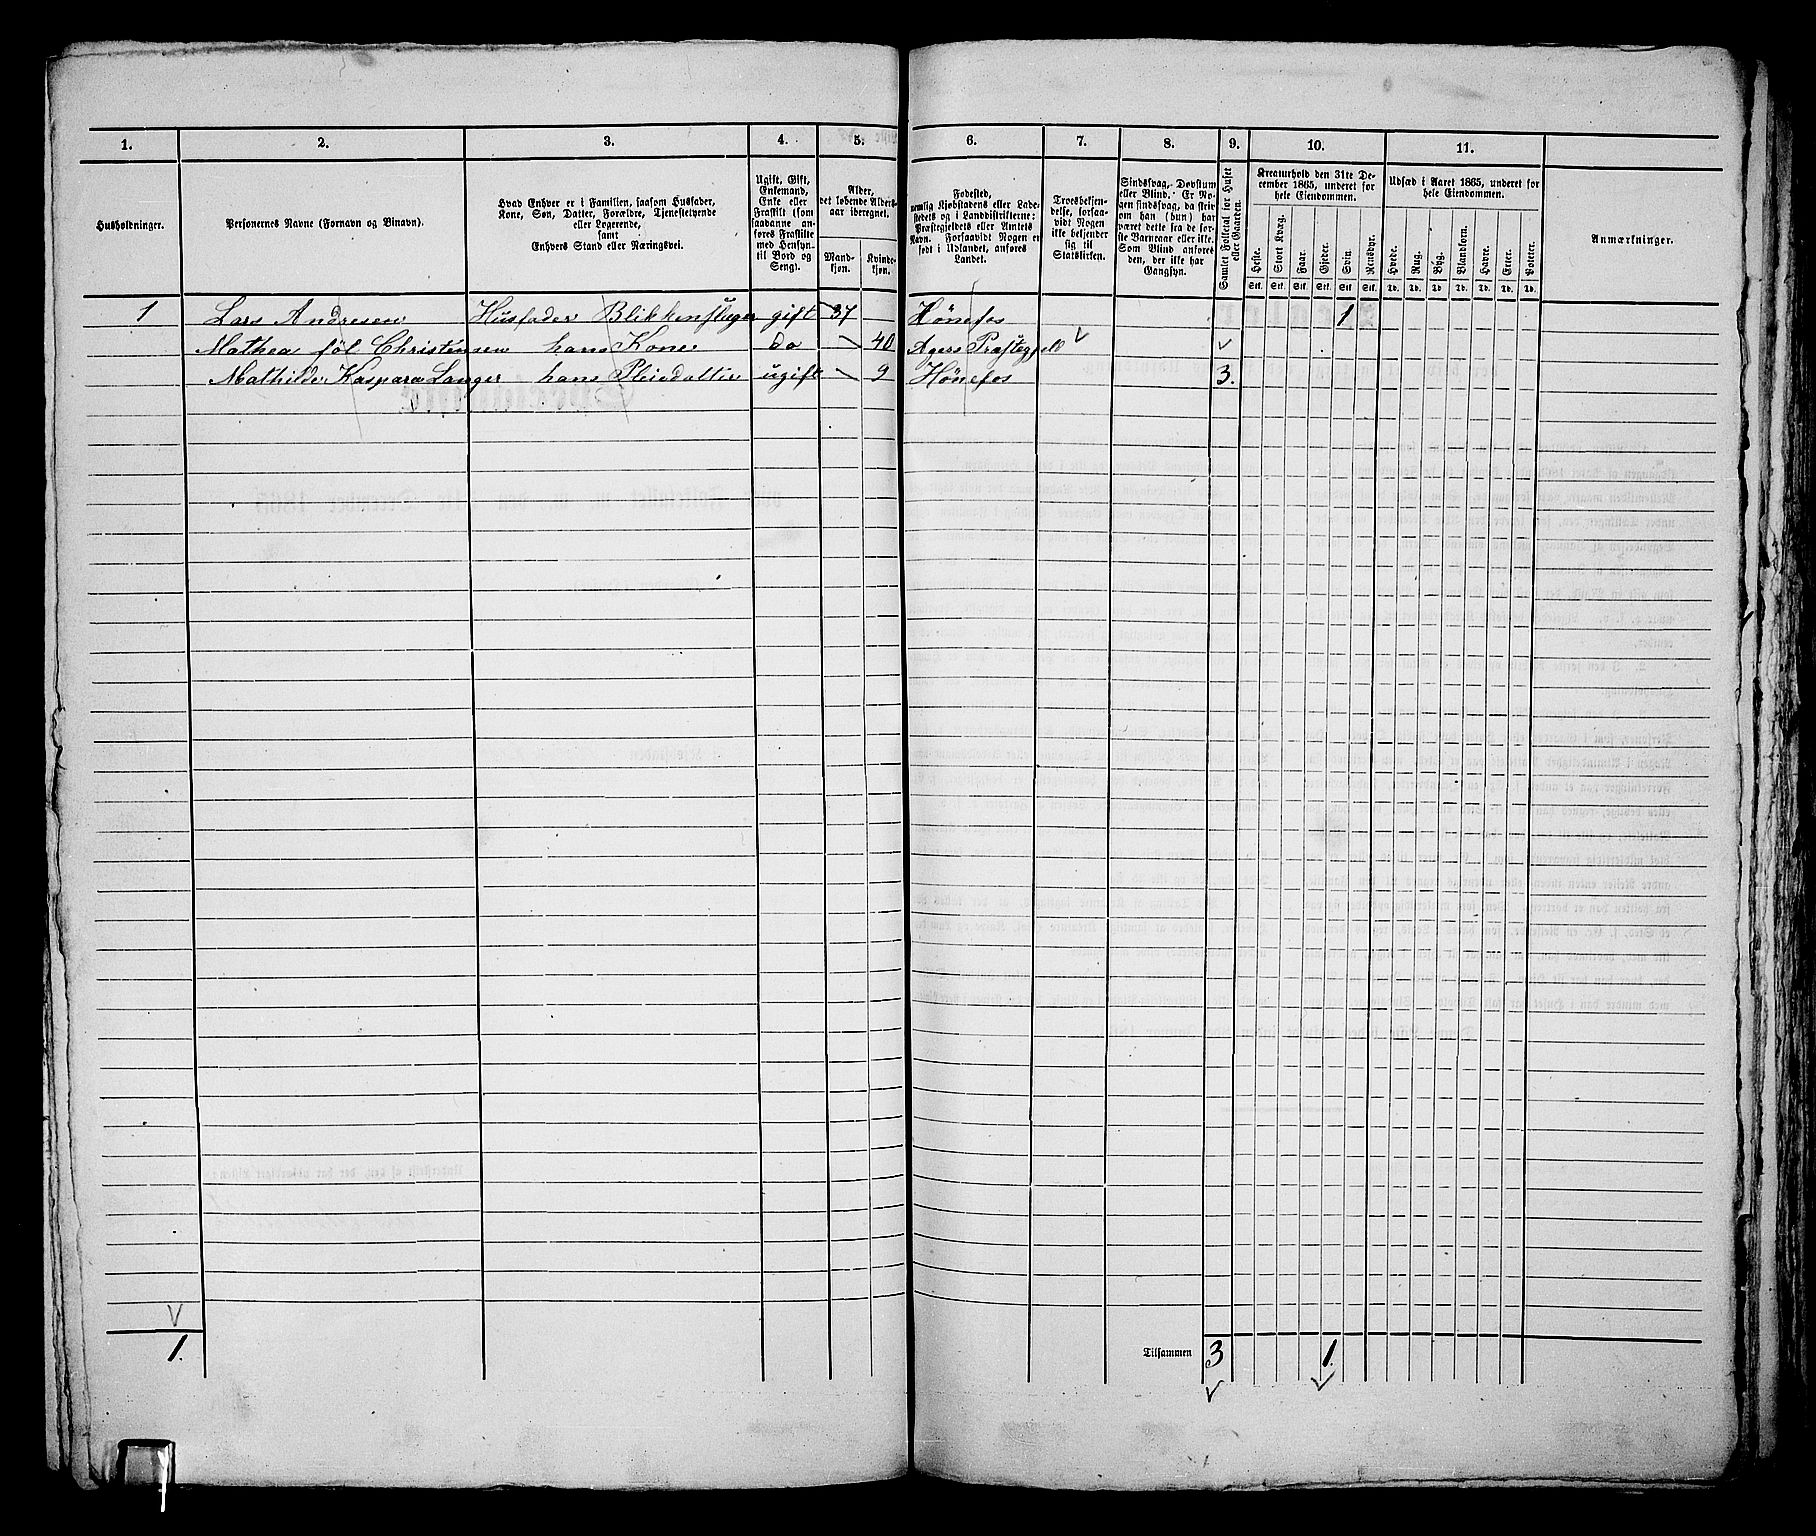 1. 2. 3. 4. 5. 6. 7. 8. 9. 10. 11.
Husholdninger.
Personernes Navne (Fornavn og Binavn).
Hvad Enhver er i Familien, saasom Husfader,
Kone, Søn, Datter, Forældre, Tjenestetyende
eller Logerende,
samt
Enhvers Stand eller Næringsvei.
Ugift, Gift,
Enkemand,
Enke eller
Fraskilt (som
saadanne an-
føres Fraskilte
med Hensyn-
til Bord og
Seng).
Alder,
det løbende Alders-
aar iberegnet.
Mand-
kjøn.
Kvinde-
kjøn.
Fødested,
nemlig Kjøbstadens eller Lade-
stedets og i Landdistrikterne:
Præstegjeldets eller Amtets
Navn. Forsaavidt Nogen er
født i Udlandet, anføres
Landet.
Troesbekjen-
delse, forsaa-
vidt Nogen
ikke bekjender
sig til
Statskirken.
Sindssvag, Døvstum
eller Blind. Er No-
gen sindssvag, da skriv
om han (hun) har
været dette fra de før-
ste Barneaar eller ikke.
Som Blind anføres
den, der ikke har
Gangsyn.
Samlet Folketal for Huset
eller Gaarden.
Kreaturhold den 31te De-
cember 1865, underet for
hele Eiendommen.
Heste. Stort Kvæg. Faar. Gjeder. Svin. Rensdyr.
Stk. Stk. Stk. Stk. Stk. Stk.
Udsæd i Aaret 1865, underet for
hele Eiendommen.
Hvede. Rug. Byg. Blandkorn. Havre. Erter. Poteter.
Td. Td. Td. Td. Td. Td. Td.
Anmærkninger.
1 Lars Andresen Husfader Blikkenslager gift 37 Hønefos 1
Mathea føl Christensen hans Kone do 40 Agers Præstegjeld
Mathilde Kaspara Langer hans Pleiedatter ugift 9 Hønefos 3.
1. Tilsammen 3 1.